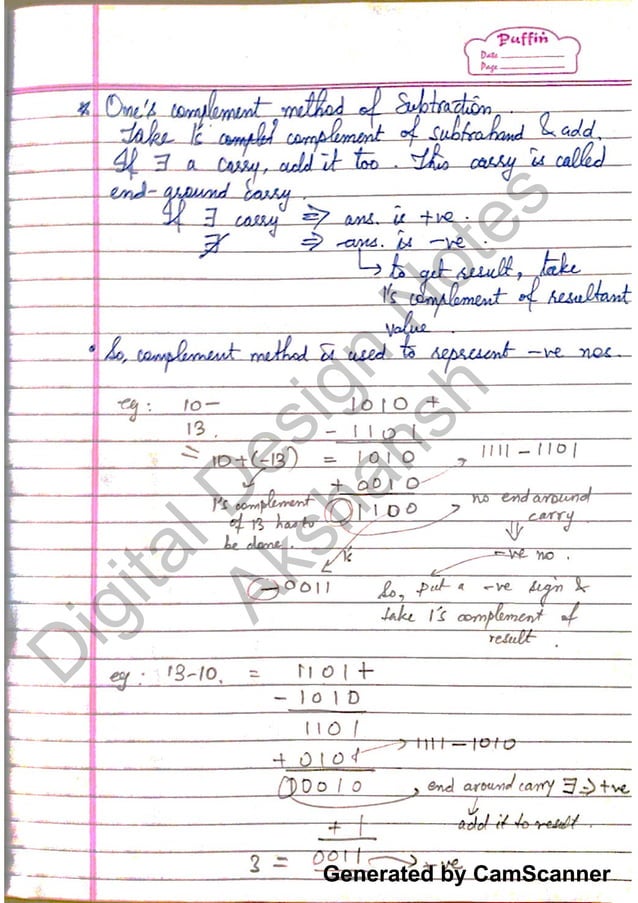 Puffin
Date
Page
* One's complement method of Subtraction.
Take 1's complement of subtrahand & add.
If ∃ a carry, add it too. This carry is called
end-ground carry.
If ∃ carry ⇒ ans. is +ve.
∄ ⇒ ans. is -ve.
→ to get result, take
1's complement of resultant
value.
• So, complement method is used to represent -ve nos.
eg: 10- 1010 +
13. - 1101
= 10+(-13) = 1010 1111-1101
+ 0010
1's complement 0 1100 no end around
of 13 has to carry
be done. ⇓
1's -ve no.
-0011 So, put a -ve sign &
take 1's complement of
result.
eg: 13-10. = 1101+
- 1010
1101
+ 0101 → 1111-1010
1 0010 end around carry ∃ ⇒ +ve
+ 1 add it to result.
3 = 0011 → +ve
Generated by CamScanner
Digital Design Notes
Akshansh